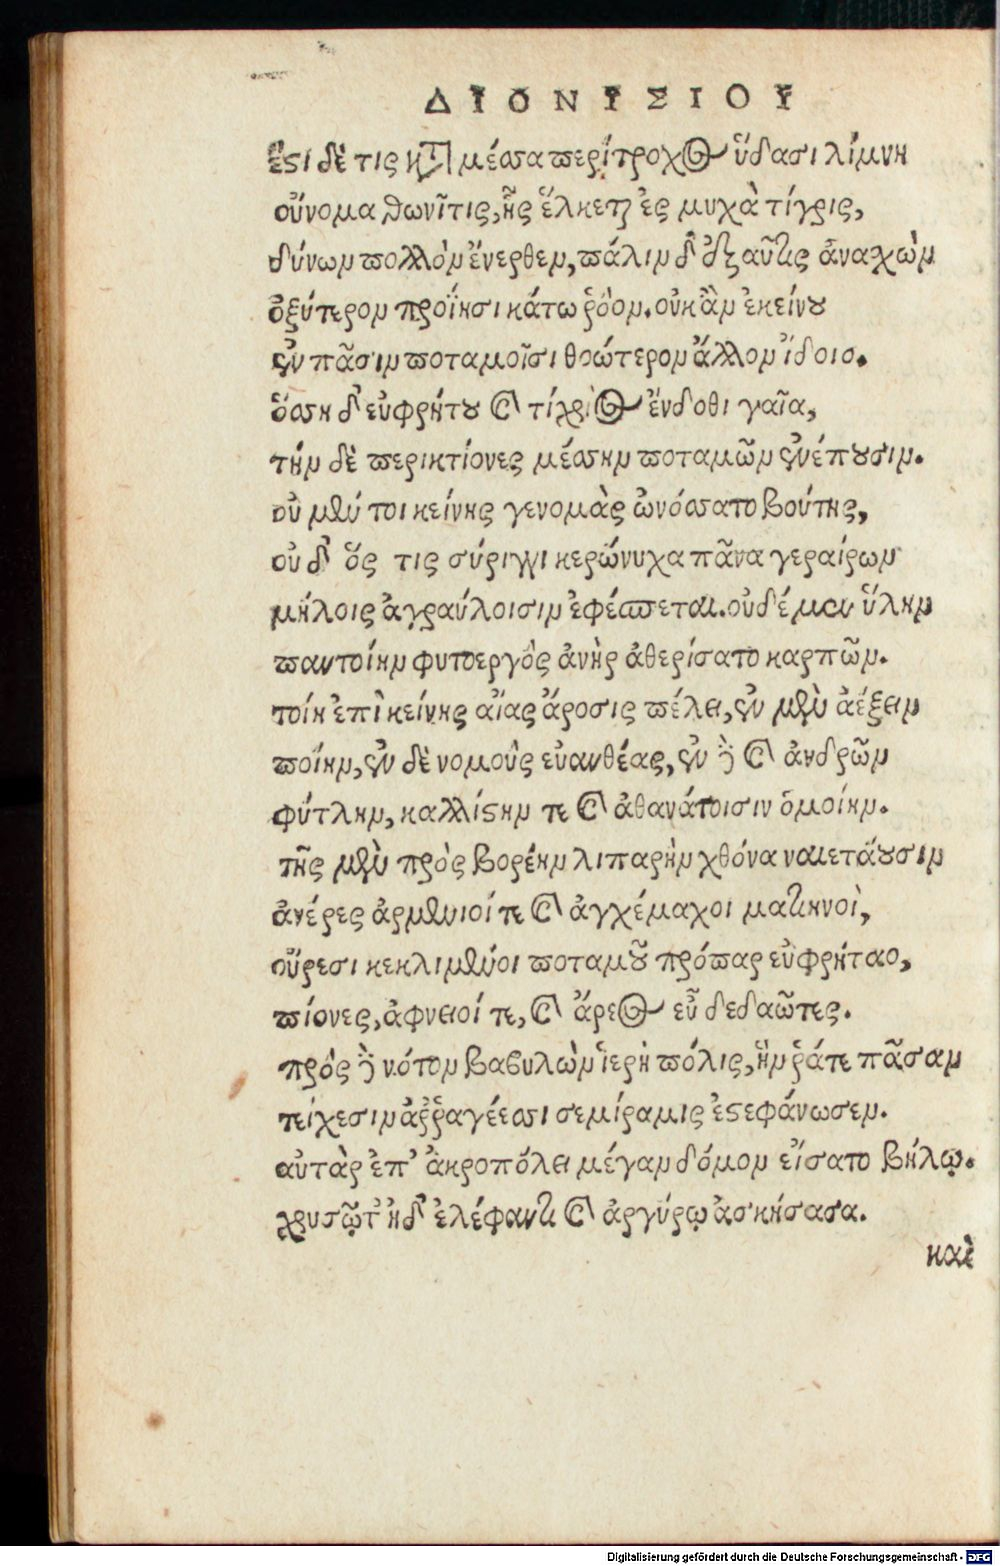 ΔΥΟΝΥΣΙΟΥ
ἔστι δέ τις κατὰ μέσσα περίτροχος ὕδασι λίμνη
οὔνομα θωνῖτις, ἧς ἕλκεται ἐς μυχὰ τίγρις,
δύνων πολλὸν ἔνερθεν, πάλιν δ' ἐξαῦτις ἀναχὼν
ὀξύτερον προΐησι κάτω ῥόον. οὐκ ἂν ἐκείνου
ἐν πᾶσιν ποταμοῖσι θοώτερον ἄλλον ἴδοισ.
ὅσση δ' εὐφρήτου καὶ τίγριος ἔνδοθι γαῖα,
τήν δὲ περικτίονες μέσσην ποταμῶν ἐνέπουσιν.
οὐ μέν τοι κείνης γενομὰς ὠνόσσατο βούτης,
οὐ δ' ὅς τις σύριγγι κερώνυχα πᾶνα γεραίρων
μήλοις ἀγραύλοισιν ἐφέσπεται. οὐδέ μεν ὕλην
παντοίην φυτοεργὸς ἀνὴρ ἀθερίσατο καρπῶν.
τοίη ἐπὶ κείνης αἴας ἄροσις πέλει, ἐν μὲν ἀέξειν
ποΐην, ἐν δὲ νομοὺς εὐανθέας, ἐν δὲ καὶ ἀνδρῶν
φύτλην, καλλίστην τε καὶ ἀθανάτοισιν ὁμοίην.
τῆς μὲν πρὸς βορέην λιπαρὴν χθόνα ναιετάουσιν
ἀνέρες ἀρμένιοί τε καὶ ἀγχέμαχοι ματιηνοὶ,
οὔρεσι κεκλιμένοι ποταμοῦ πρόπαρ εὐφρήταο,
πίονες, ἀφνειοί τε, καὶ ἄρεος εὖ δεδαῶτες.
πρὸς δὲ νότον βαβυλὼν ἱερὴ πόλις, ἥν ῥάτε πᾶσαν
τείχεσιν ἀῤῥαγέεσσι σεμίραμις ἐστεφάνωσεν.
αὐτὰρ ἐπ' ἀκροπόλει μέγαν δόμον εἵσατο βήλῳ.
χρυσῷτ' ἠδ' ἐλέφαντι καὶ ἀργύρῳ ἀσκήσασα.
καὶ
Digitalisierung gefördert durch die Deutsche Forschungsgemeinschaft - DFG